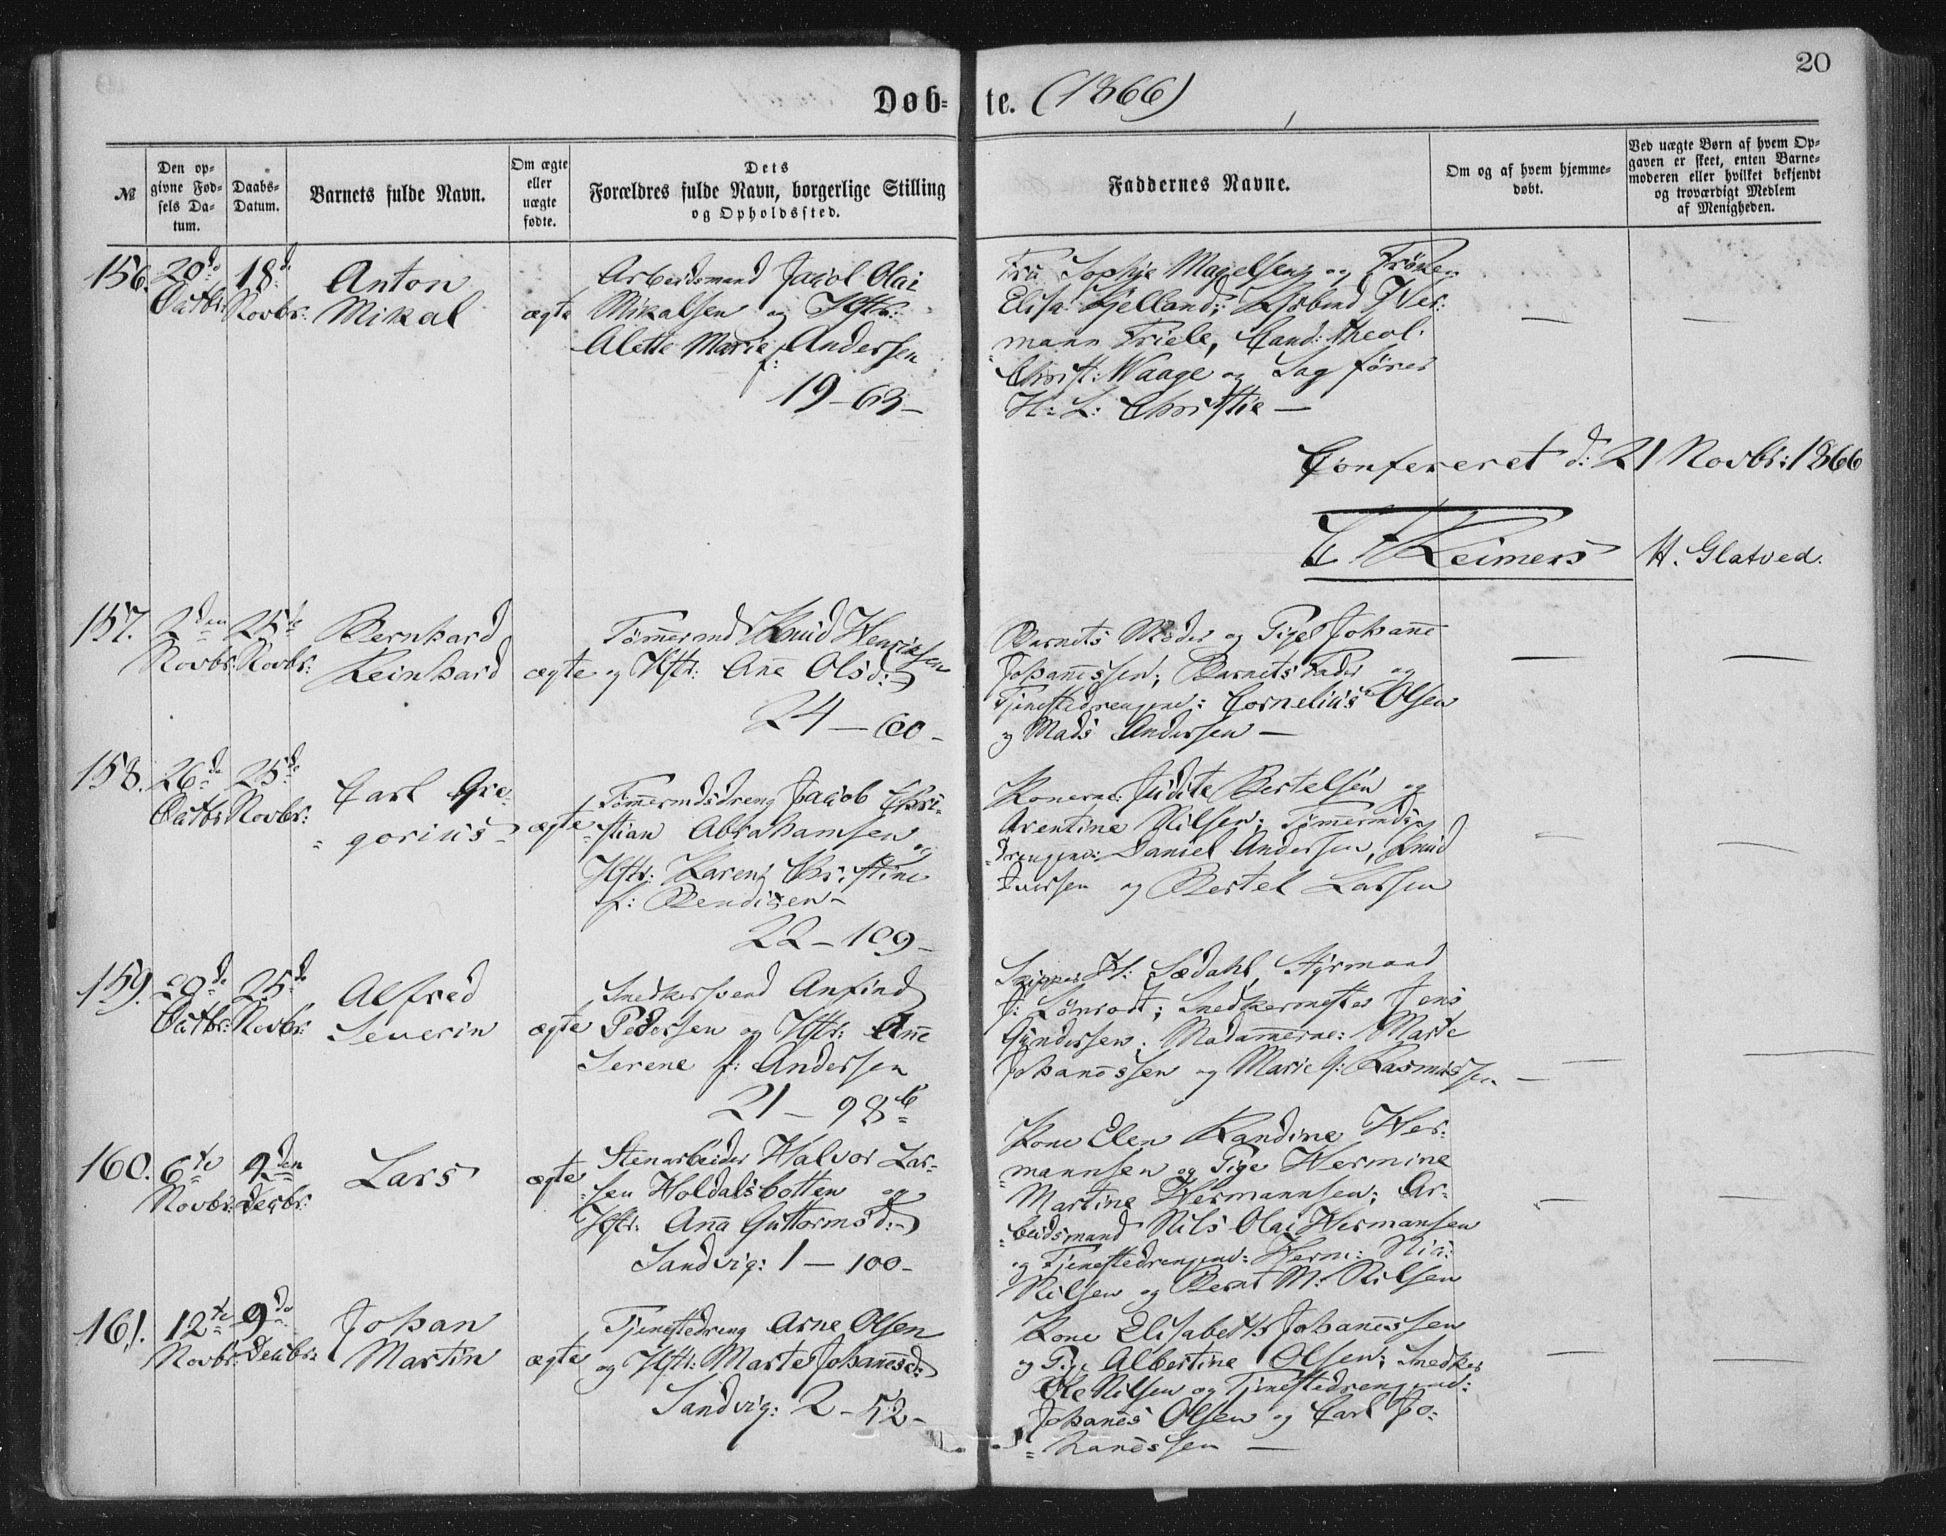 20
Døb- te. (1866)
№
Den op-
givne Fød-
sels Da-
tum.
Daabs-
Datum.
Barnets fulde Navn.
Om ægte
eller
uægte
fødte.
Dets
Forældres fulde Navn, borgerlige Stilling
og Opholdssted.
Faddernes Navne.
Om og af hvem hjemme-
døbt.
Ved uægte Børn af hvem Op-
gaven er skeet, enten Barne-
moderen eller hvilket bekjendt
og troværdigt Medlem
af Menigheden.
156. 20de Octbr: 18de Novbr: Anton
Mikal
ægte
Arbeidsmand Jacob Olai
Mikalsen og Hstr:
Alette Marie f: Andersen
19 - 63 -
Fru Sophie Magelsen og Frøken
Elisa Kjelland; Kjøbmd Her-
mann Friele, Cand: theol.
Christ: Waage og Sagfører
H: L: Christie —
Confereret d: 21 Novbr: 1866
Reimers H. Glatved.
157. 2den Novbr: 25de Novbr: Bernhard
Reinhard
ægte
Tømermd Knud Henriksen
og Hstr: Ane Olsd:
24 - 60 -
Barnets Moder og Pige Johane
Johanessen; Barnets Fader og
Tjenestedrengene: Cornelius Olsen
og Mads Andersen —
158. 26de Octbr: 25de Novbr: Carl Gre-
gorius
ægte
Tømermdsdreng Jacob Chri-
stian Abrahamsen og
Hstr: Karen Christine
f: Bendixen
22 - 109 -
Konerne: Judite Bertelsen og
Arentine Nilsen; Tømermds-
drengene: Daniel Andersen, Knud
Iversen og Bertel Larsen
159. 29de Octbr: 25de Novbr: Alfred
Severin
ægte
Snedkersvend Anfind
Pedersen og Hstr: Ane
Serene f: Andersen
21 - 98 b
Skipper H: Sædahl, Styrmand
Snedkermester Jens
Gundersen; Madamerne: Marte
Johanessen og Marie G: Rasmussen —
160. 6te Novbr: 9den Decbr: Lars
ægte
Stenarbeider Halvor Lar-
sen Holdalsbotten og
Hstr: Ana Guttormsd:
Sandvig: 1 - 100 -
Kone Elen Randine Her-
mannsen og Pige Hermine
Martine Hermannsen; Ar-
beidsmand Nils Olai Hermansen
og Tjenestedrengene: Herm: Nic:
Nilsen og Bernt M: Nilsen
161. 12te Novbr: 9de Decbr: Johan
Martin
ægte
Tjenestedreng Arne Olsen
og Hstr: Marte Johanesd:
Sandvig: 2 - 52 -
Kone Elisabeth Johanessen
og Pige Albertine Olsen; Snedker
Ole Nilsen og Tjenestedrengene:
Johanes Olsen og Carl Jo-
hanessen —